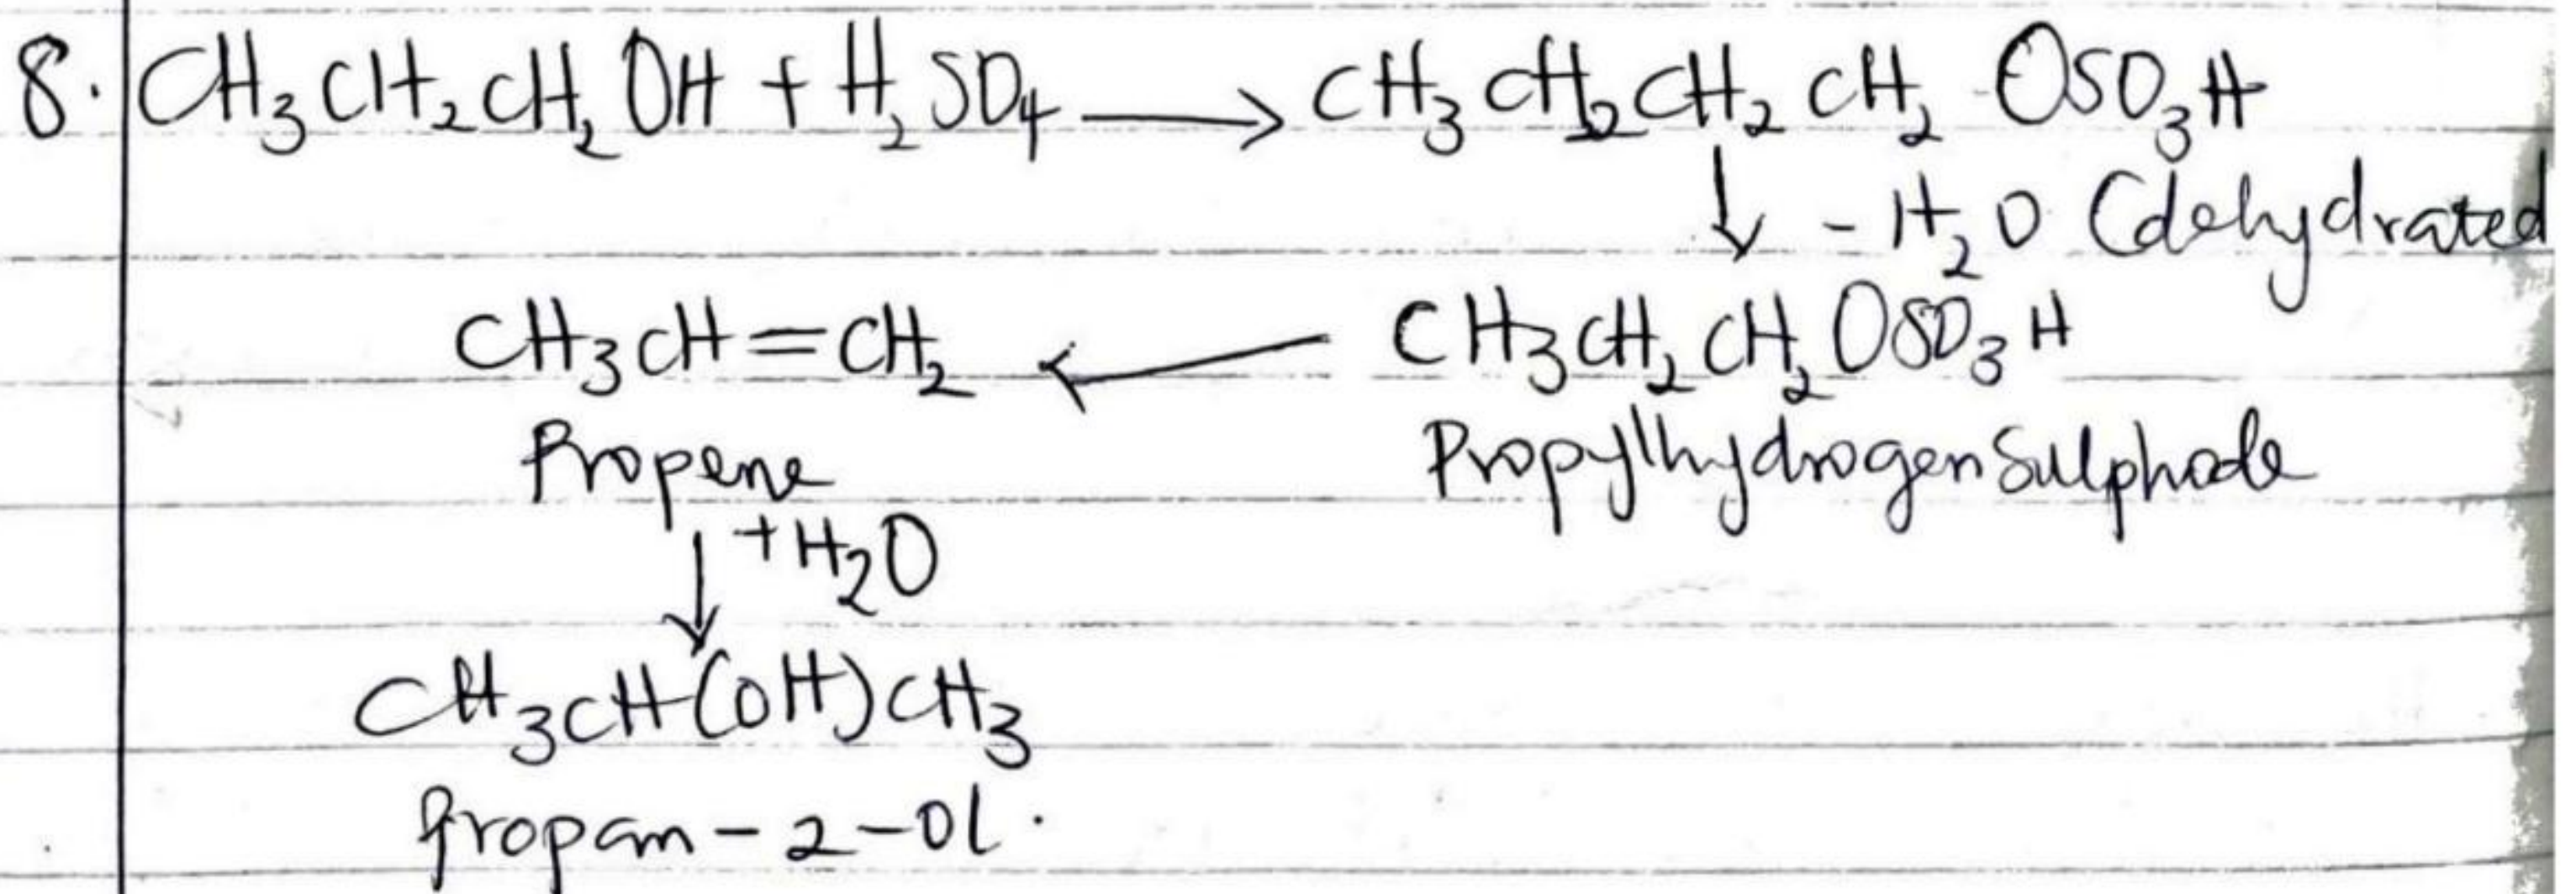 8. CH₃CH₂CH₂OH + H₂SO₄ ⟶ CH₃CH₂CH₂CH₂ OSO₃H
↓ - H₂O (dehydrated
CH₃CH=CH₂ ⟵ CH₃CH₂CH₂OSO₃H
Propene Propylhydrogen Sulphate
↓ +H₂O
CH₃CH(OH)CH₃
Propan-2-ol.